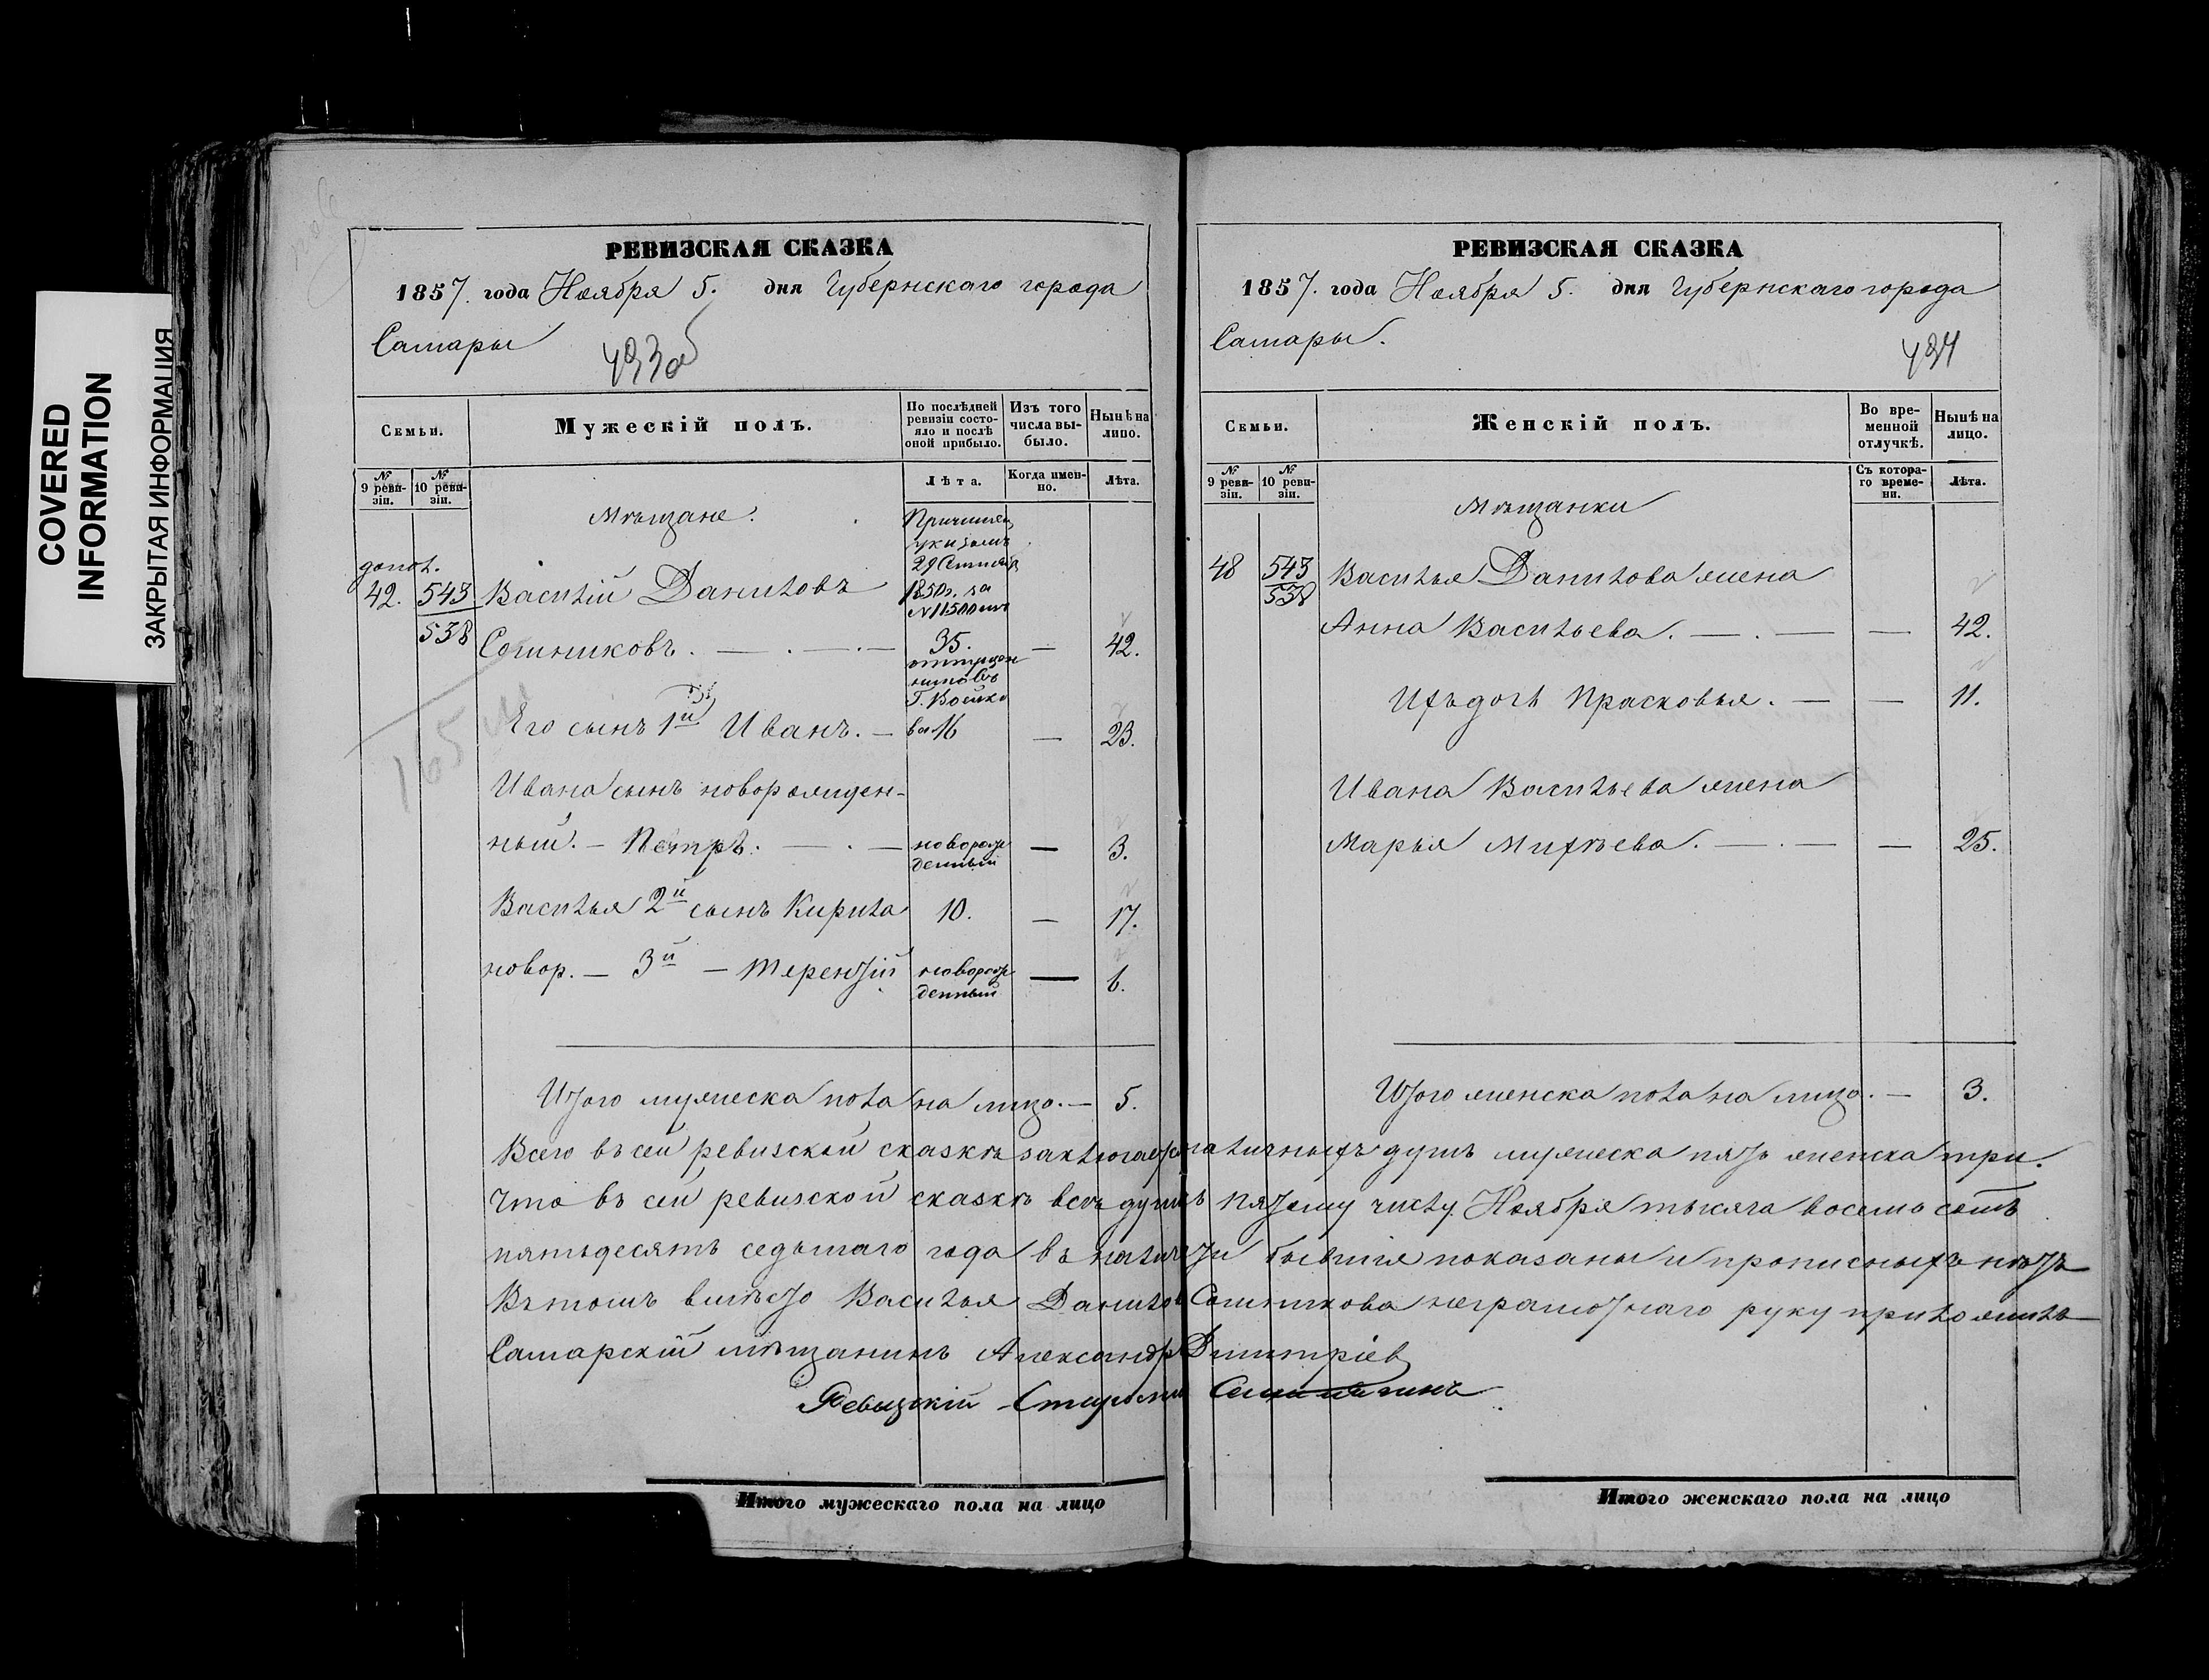 COVERED
INFORMATION
ЗАКРЫТАЯ ИНФОРМАЦИЯ
РЕВИЗСКАЯ СКАЗКА
1857. года Ноября 5. дня Губернскаго города
Самары
493об
Семьи.
Мужескій полъ.
По послѣдней ревизіи состояло и послѣ оной прибыло.
Изъ того числа выбыло.
Нынѣ на лицо.
№ 9 ревизіи.
№ 10 ревизіи.
Лѣта.
Когда именно.
Лѣта.
Мѣщане.
Причислен
указомъ
29 Сентяб
допол.
42. 543 Василій Даниловъ 1850 г. за
№ 11500
538 Сошниковъ. — . — . — 35. — 42.
Г. Войко
Его сынъ 1й Иванъ. — ва 16 — 23.
Ивана сынъ новорожден-
ный. — Петръ. — . — новорож
денный — 3.
Василья 2й сынъ Кирила 10. — 17.
новор. — 3й — Терентій новорож
денный — 6.
Итого мужеска пола на лицо. — 5.
РЕВИЗСКАЯ СКАЗКА
1857. года Ноября 5. дня Губернскаго города
Самары.
494
Семьи.
Женскій полъ.
Во временной отлучкѣ.
Нынѣ на лицо.
№ 9 ревизіи.
№ 10 ревизіи.
Съ котораго времени.
Лѣта.
Мѣщанки
48 543 Василья Данилова жена
538
Анна Васильева. — . — — 42.
Ихъ дочь Прасковья. — — 11.
Ивана Васильева жена
Марья Михѣева. — . — — 25.
Итого женска пола на лицо. — 3.
Всего въ сей ревизской сказкѣ заключается наличныхъ душъ мужеска пять женска три.
Что въ сей ревизской сказкѣ всѣ души къ пятому числу Ноября тысяча восемь сотъ
пятьдесятъ седьмаго года въ наличности бывшія показаны и прописныхъ нѣтъ
Въ томъ вмѣсто Василья Данилов Сошникова неграмотнаго руку приложилъ
Самарскій мѣщанинъ Александръ Димитріев
Ревизскій Староста
Итого мужескаго пола на лицо
Итого женскаго пола на лицо